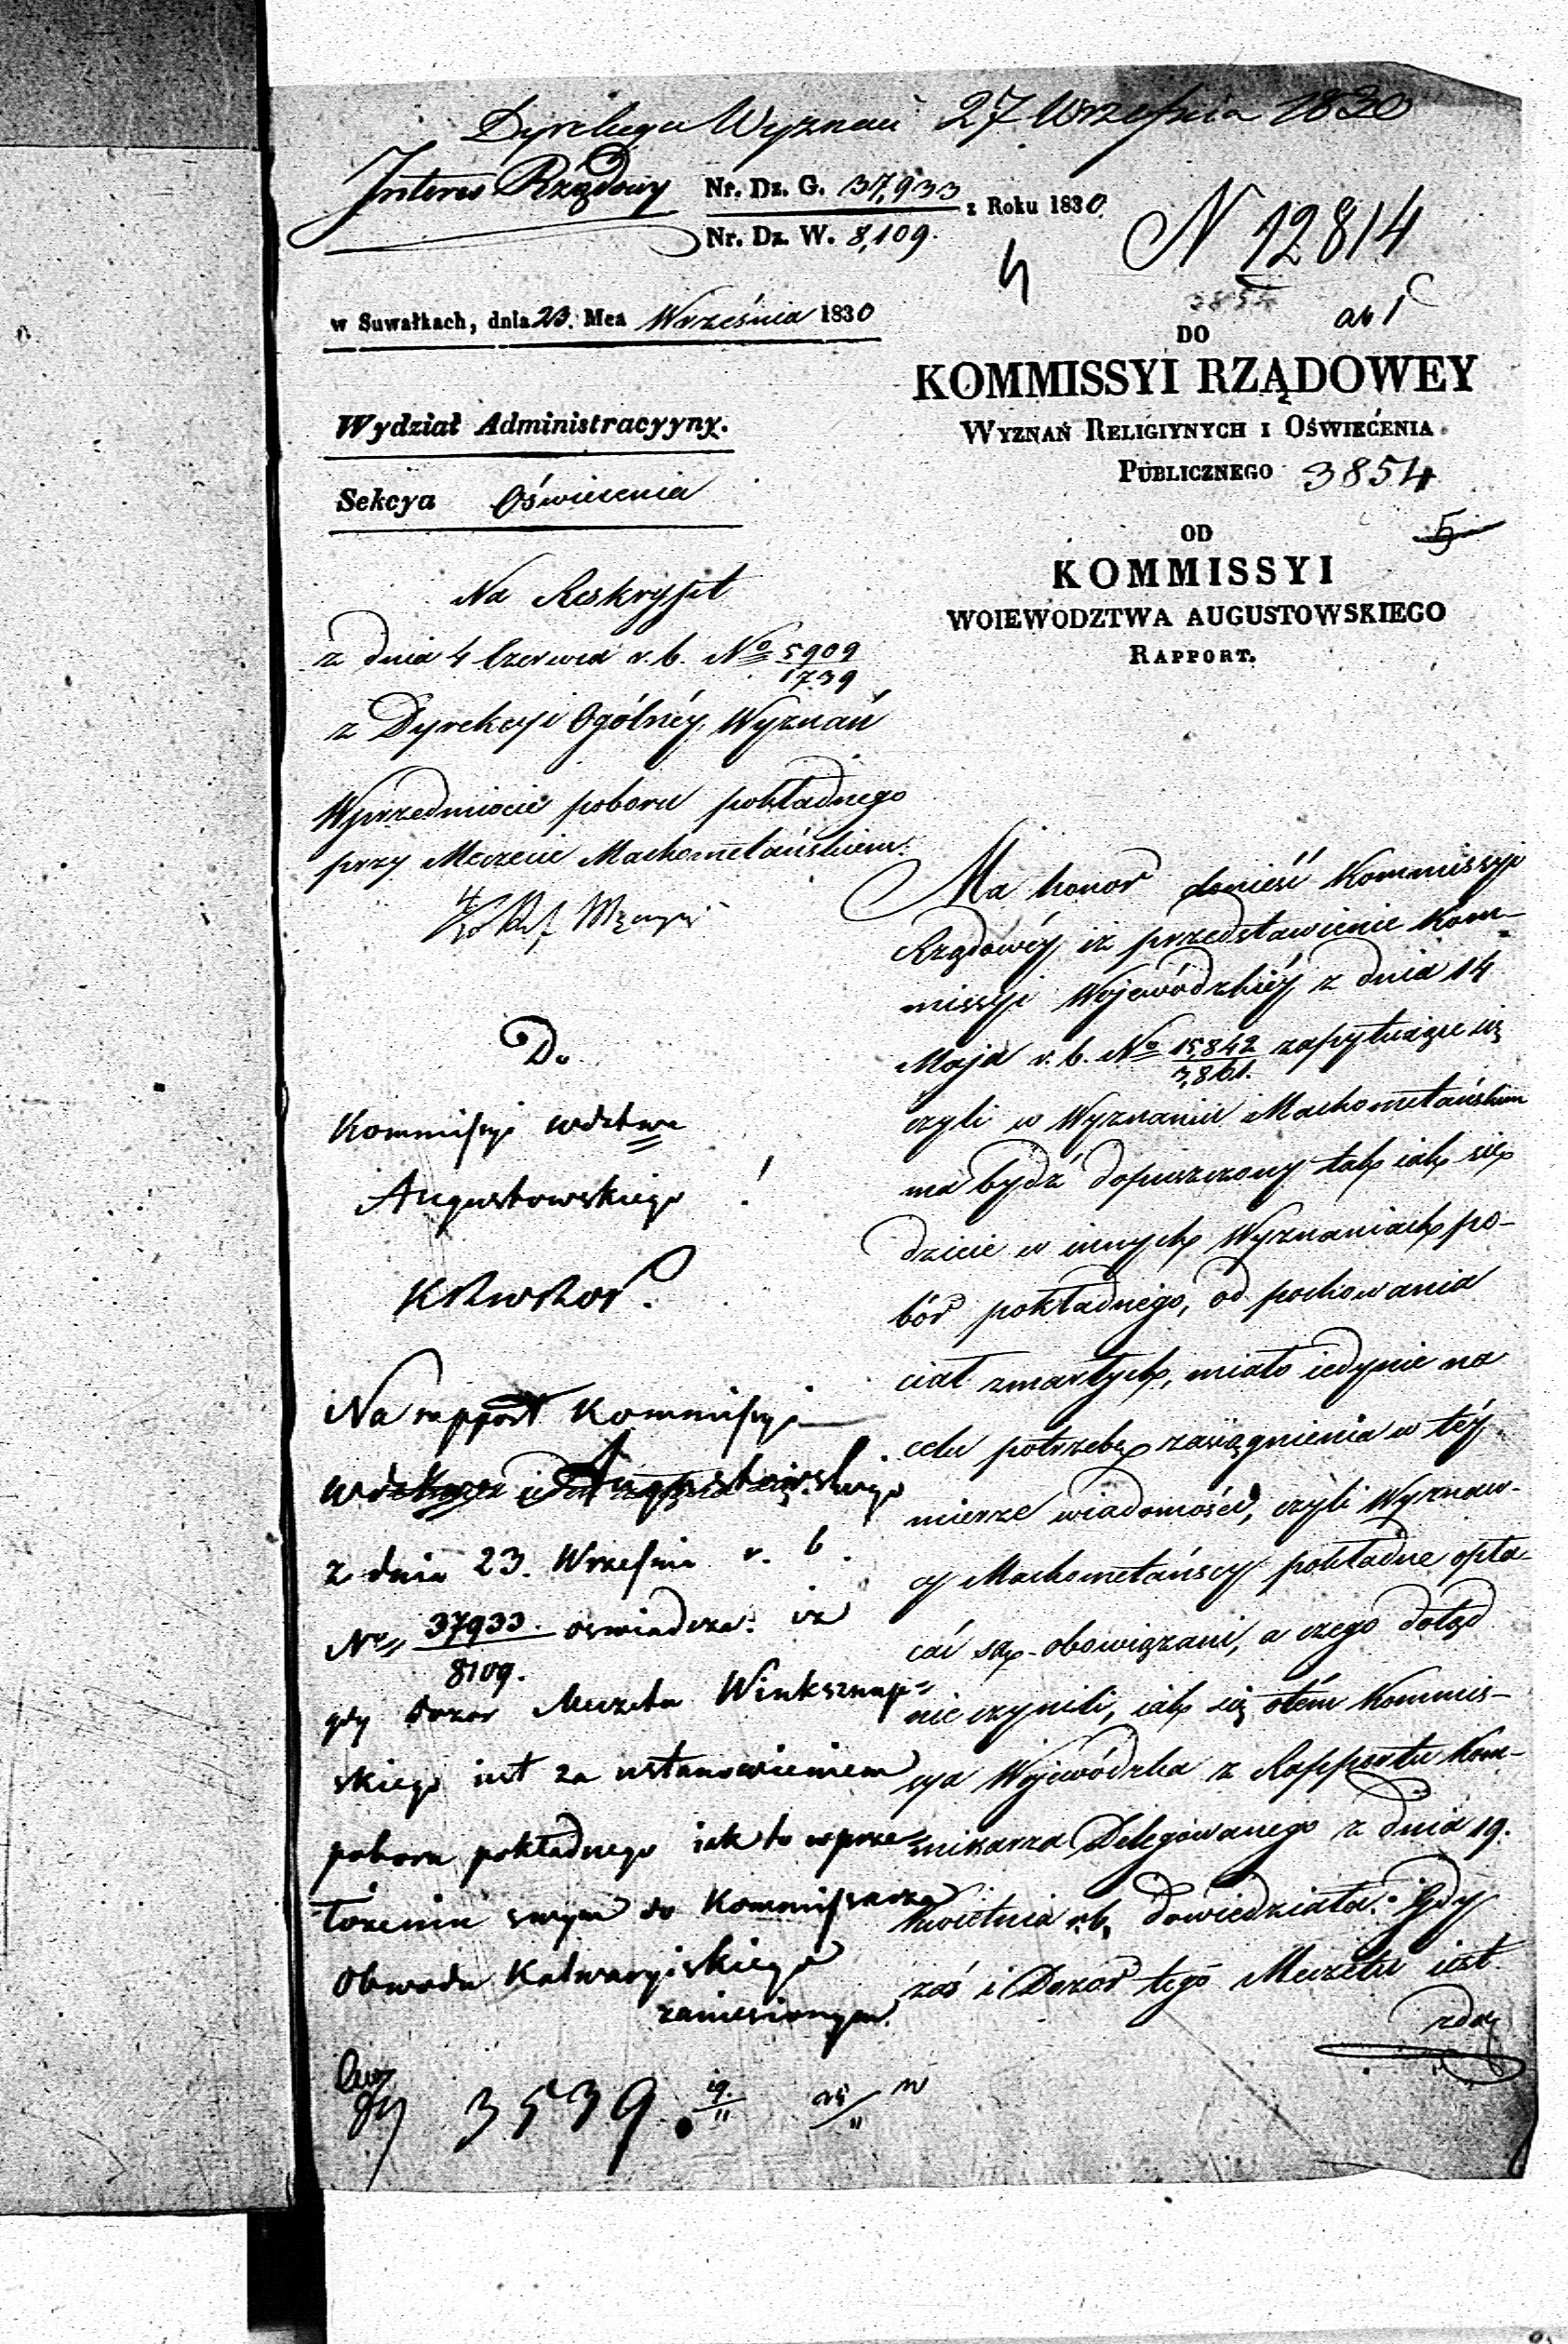 Dyrekcya Wyznań 27 Września 1830
Interes Rządowy
Nr. Dz. G. 37,933
Nr. Dz. W. 8,109.
z Roku 1830.
N 12814
w Suwałkach, dnia 23. Mca Września 1830
Wydział Administracyyny.
Sekcya Oświecenia
Na Reskrypt
z dnia 4 Czerwca r. b. No 5909
1739
z Dyrekcyi Ogólnéy Wyznań
Wprzedmiocie poboru pokładnego
przy Meczecie Machometańskiem.
3854
DO
KOMMISSYI RZĄDOWEY
WYZNAŃ RELIGIYNYCH I OŚWIECENIA
PUBLICZNEGO 3854
5
OD
KOMMISSYI
WOIEWODZTWA AUGUSTOWSKIEGO
RAPPORT.
Ma honor donieść Kommissyi
Rządowéy iż przedstawienie Kom-
missyi Wojewódzkiéy z dnia 14
Maja r. b. No 15,842 zapytuiące się
3,861.
czyli w Wyznaniu Machometańskim
ma bydź dopuszczony tak iak się
dzieie w innych Wyznaniach po-
bór pokładnego, od pochowania
ciał zmarłych, miało iedynie na
celu potrzebę zasiągnienia w téy
mierze wiadomości, czyli Wyznaw-
cy Machometańscy pokładne opła-
cać są obowiązani, a czego dotąd
nie czynili, iak się otém Kommis-
sya Wojewódzka z Rapportu Kom-
missarza Delegowanego z dnia 19.
Kwietnia r.b. dowiedziała. Gdy
zaś i Dozor tego Meczetu iest
zda
Do
Kommissyi Wdztwa
Augustowskiego
KRWROP.
Na rapport Kommissyi
Wdztwa Augustowskiego
z dnia 23. Września r. b.
No 37933. oswiadcza: iż
8109.
gdy Dozor Meczetu Winksznup=
skiego iest za ustanowieniem
poboru pokładnego iak to w prze=
łożeniu swym do Kommissarza
Obwodu Kalwaryiskiego
zaniesionym
3539. 19/11